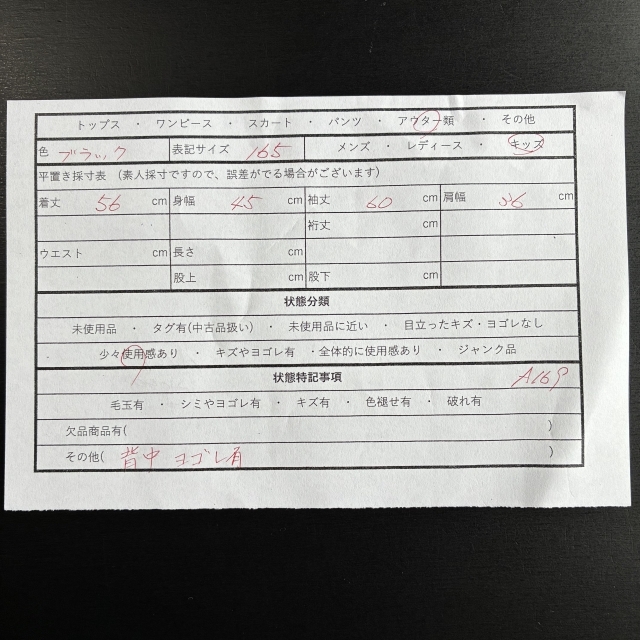 トップス ・ ワンピース ・ スカート ・ パンツ ・ アウター類 ・ その他
色 ブラック 表記サイズ 165 メンズ ・ レディース ・ キッズ
平置き採寸表 (素人採寸ですので、誤差がでる場合がございます)
着丈 56 cm 身幅 45 cm 袖丈 60 cm 肩幅 36 cm
裄丈 cm
ウエスト cm 長さ cm
股上 cm 股下 cm
状態分類
未使用品 ・ タグ有(中古品扱い) ・ 未使用品に近い ・ 目立ったキズ・ヨゴレなし
少々使用感あり ・ キズやヨゴレ有 ・全体的に使用感あり ・ ジャンク品
状態特記事項 A169
毛玉有 ・ シミやヨゴレ有 ・ キズ有 ・ 色褪せ有 ・ 破れ有
欠品商品有( )
その他( 背中 ヨゴレ有 )